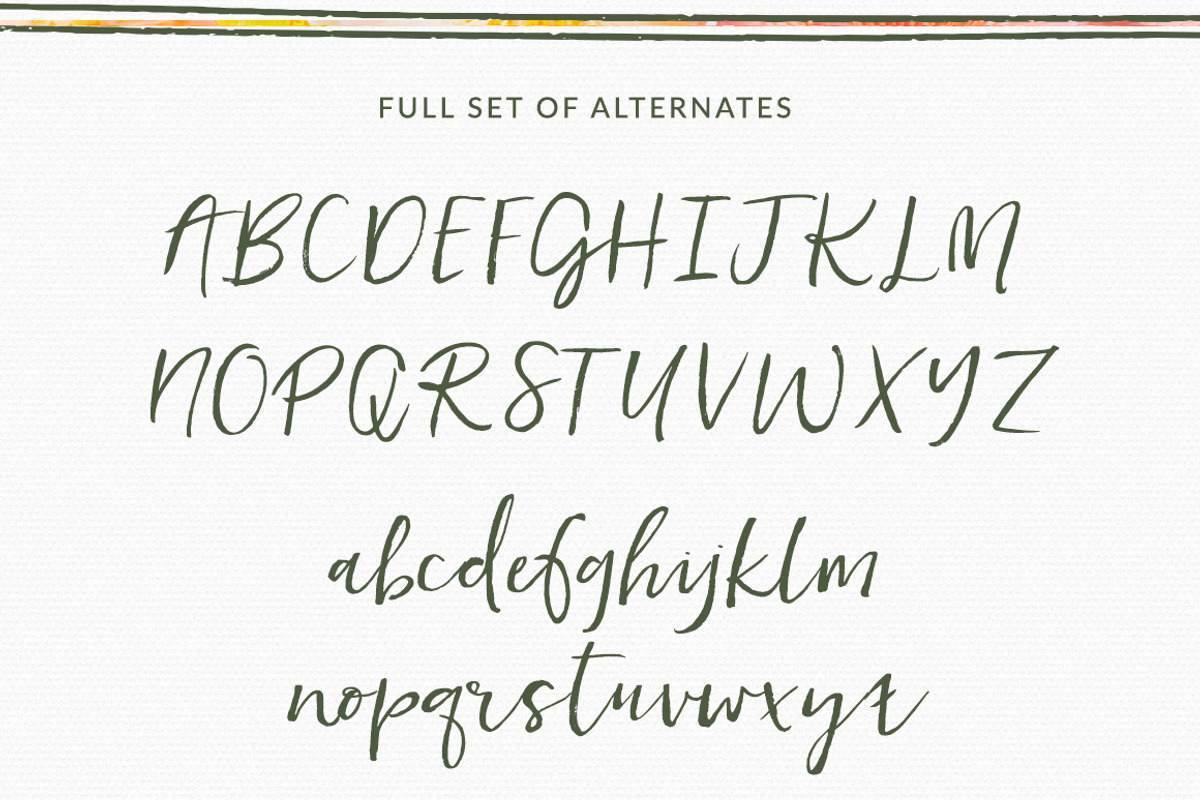 FULL SET OF ALTERNATES
ABCDEFGHIJKLM
NOPQRSTUVWXYZ
abcdefghijklm
nopqrstuvwxyz